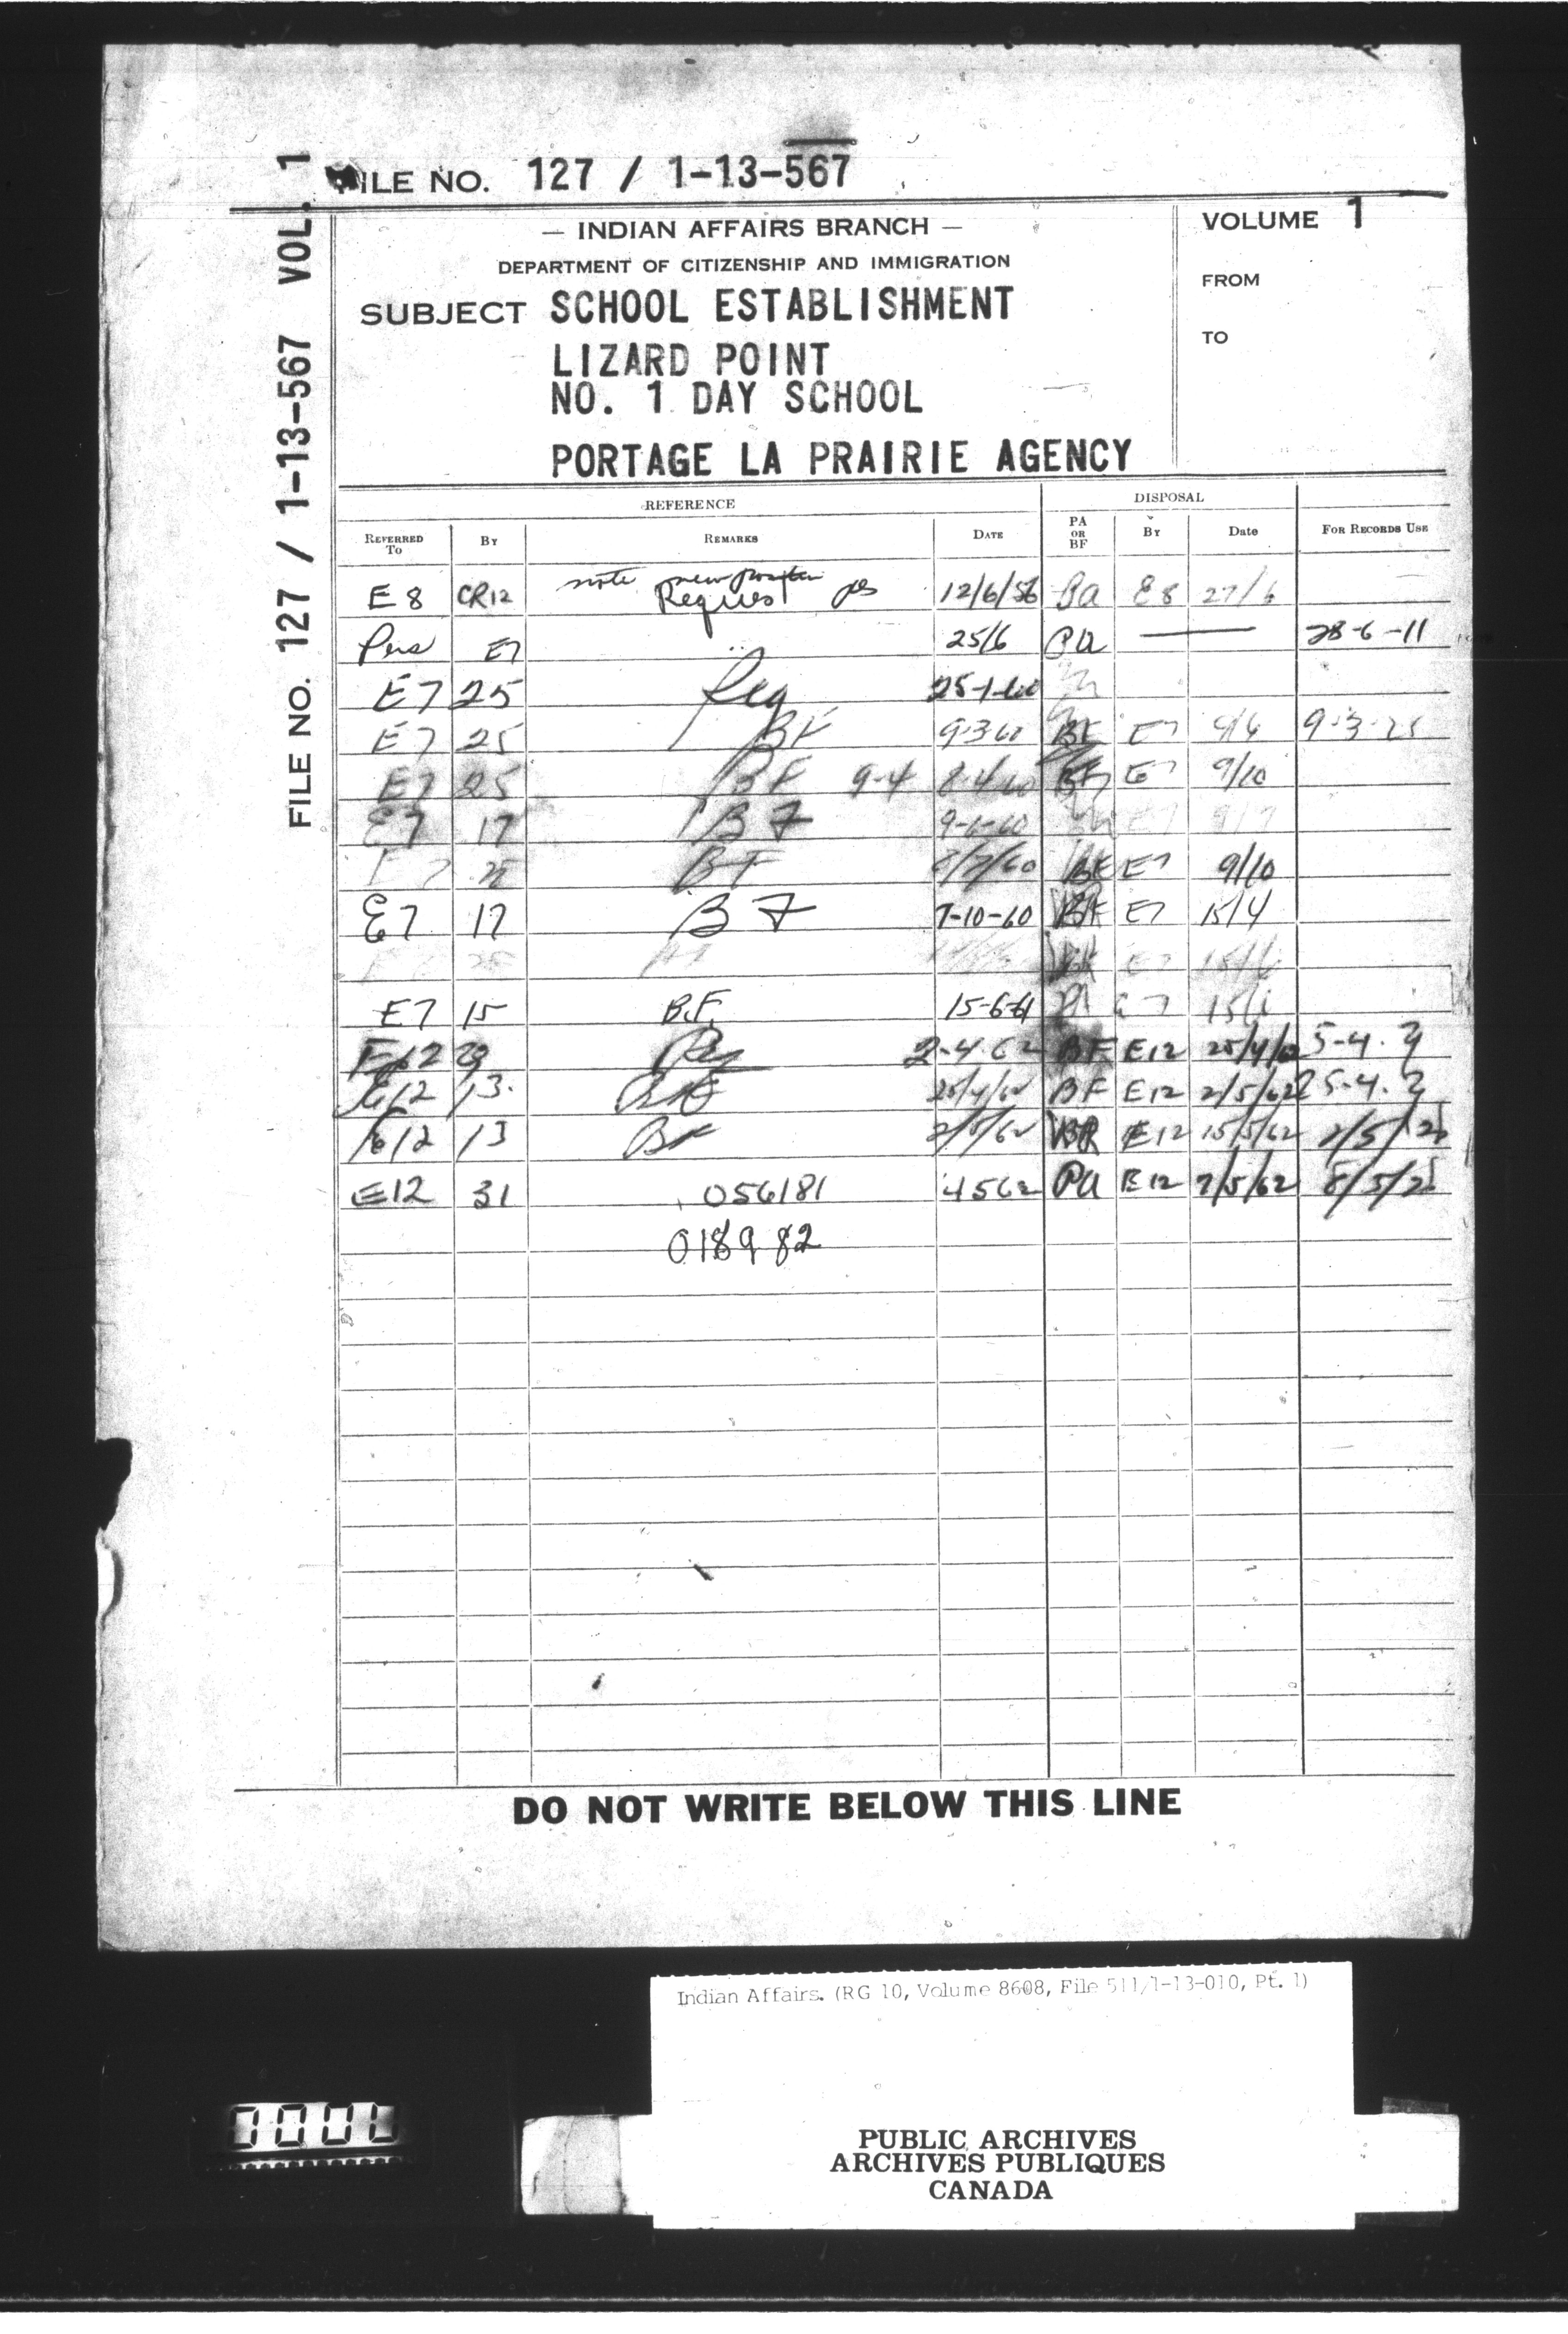 FILE NO. 127 / 1-13-567 VOL. 1
ILE NO. 127 / 1-13-567
— INDIAN AFFAIRS BRANCH —
DEPARTMENT OF CITIZENSHIP AND IMMIGRATION
SUBJECT SCHOOL ESTABLISHMENT
LIZARD POINT
NO. 1 DAY SCHOOL
PORTAGE LA PRAIRIE AGENCY
VOLUME 1
FROM
TO
REFERENCE DISPOSAL
REFERRED TO BY REMARKS DATE PA OR BF BY Date FOR RECORDS USE
E8 CR12 note new Request 12/6/56 Pa E8 27/6
E7 25/6 PA — 28-6-11
E7 25 Req 25-1-60
E7 25 BF 9-3-60 BF E7 9-3-25
E7 25 BF 9-4 8-4-60 BF E7 9/10
E7 17 BF 9-6-60 E7
BF 8/7/60 BF E7 9/10
E7 17 BF 7-10-60 BF E7 15/4
E7
E7 15 B.F. 15-6-61 PA
E12 2-4-62 BF E12 25/4/62 5-4
E12 13 BF 25/4/62 BF E12 2/5/62 5-4
E12 13 BF 2/5/62 E12 15/5/62 2/5/
E12 31 056181 4562 PA E12 7/5/62 8/5/
018982
DO NOT WRITE BELOW THIS LINE
Indian Affairs. (RG 10, Volume 8608, File 511/1-13-010, Pt. 1)
PUBLIC ARCHIVES
ARCHIVES PUBLIQUES
CANADA